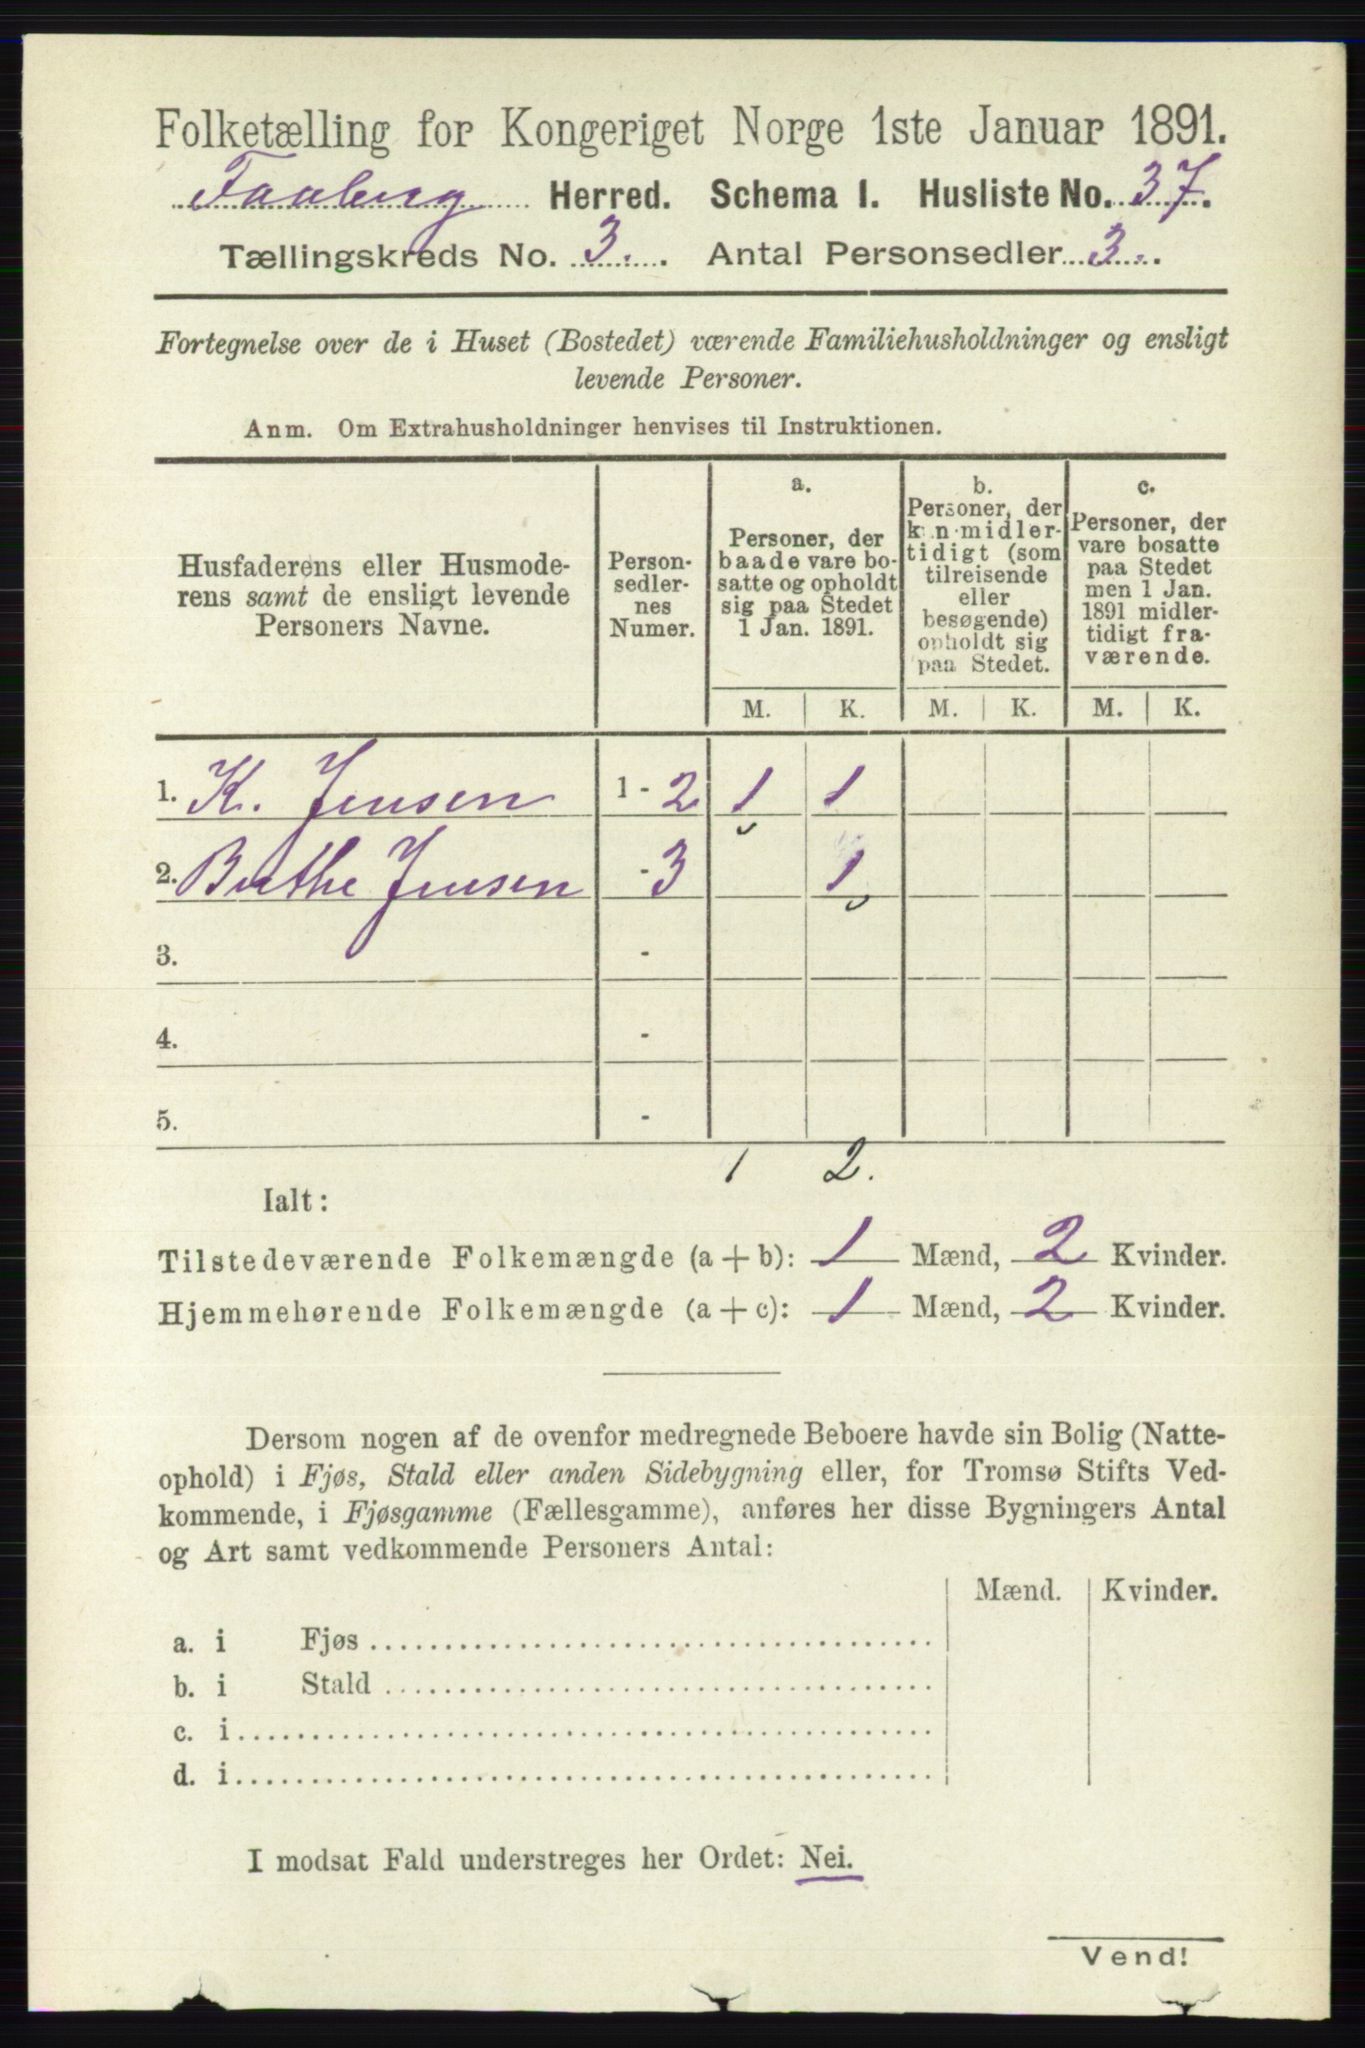 Folketælling for Kongeriget Norge 1ste Januar 1891.
Faaberg Herred. Schema I. Husliste No. 37.
Tællingskreds No. 3. Antal Personsedler 3.
Fortegnelse over de i Huset (Bostedet) værende Familiehusholdninger og ensligt
levende Personer.
Anm. Om Extrahusholdninger henvises til Instruktionen.
Husfaderens eller Husmode-
rens samt de ensligt levende
Personers Navne.
Person-
sedler-
nes
Numer.
a.
Personer, der
baade vare bo-
satte og opholdt
sig paa Stedet
1 Jan. 1891.
b.
Personer, der
kun midler-
tidigt (som
tilreisende
eller
besøgende)
opholdt sig
paa Stedet.
c.
Personer, der
vare bosatte
paa Stedet
men 1 Jan.
1891 midler-
tidigt fra-
værende.
M. K. M. K. M. K.
1. K. Jensen 1 - 2 1 1
2. Berthe Jensen - 3 1
3. -
4. -
5. -
1 2.
Ialt:
Tilstedeværende Folkemængde (a + b): 1 Mænd, 2 Kvinder.
Hjemmehørende Folkemængde (a + c): 1 Mænd, 2 Kvinder.
Dersom nogen af de ovenfor medregnede Beboere havde sin Bolig (Natte-
ophold) i Fjøs, Stald eller anden Sidebygning eller, for Tromsø Stifts Ved-
kommende, i Fjøsgamme (Fællesgamme), anføres her disse Bygningers Antal
og Art samt vedkommende Personers Antal:
Mænd. Kvinder.
a. i Fjøs
b. i Stald
c. i
d. i
I modsat Fald understreges her Ordet: Nei.
Vend!